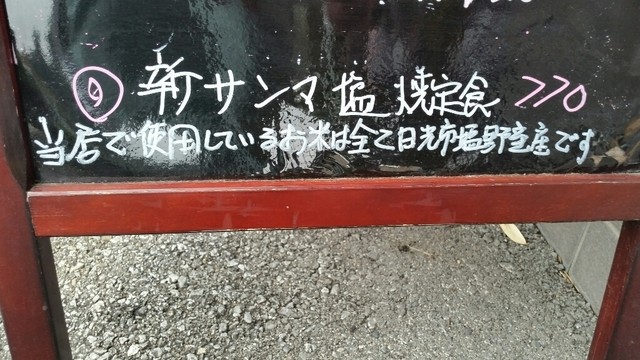 ⑨ 新サンマ塩焼定食 770
当店で使用しているお米は全て日光市塩野室産です